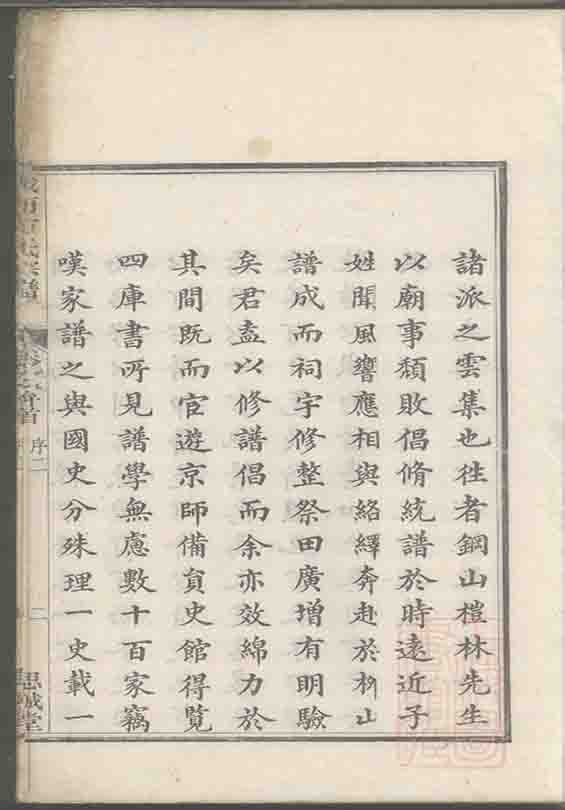 諸派之雲集也徃者鋼山榿林先生
以廟事頹敗倡脩統譜於時遠近子
姓聞風響應相與絡繹奔赴於桝山
譜成而祠宇修整祭田廣增有明驗
矣君盍以修譜倡而余亦效綿力於
其間既而官遊京師備員史館得覽
四庫書所見譜學無慮數十百家竊
嘆家譜之與國史分殊理一史載一
序二
二
思誠堂